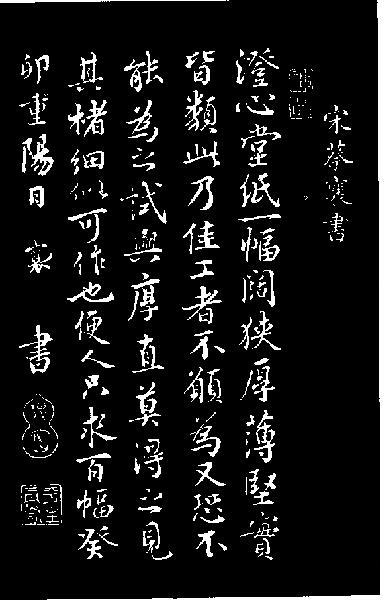 宋蔡襄書
澄心堂紙一幅闊狹厚薄堅實
皆類此乃佳工者不願為又恐不
能為之試與厚直莫得之見
其楮細似可作也便人只求百幅癸
卯重陽日 襄 書